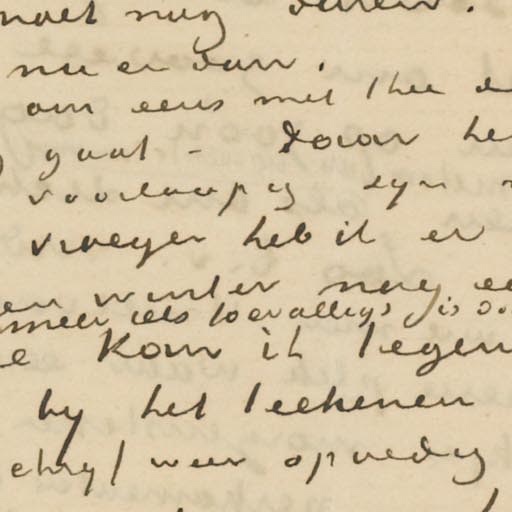 moet nog duren.
nu en dan.
om eens met thee
gaat - Daar he
voorloopig zijn
vroeger heb ik er
winter nog ee
meer iets toevalligs, is
Kom ik tegen
by het teekenen
schryf weer spoedig